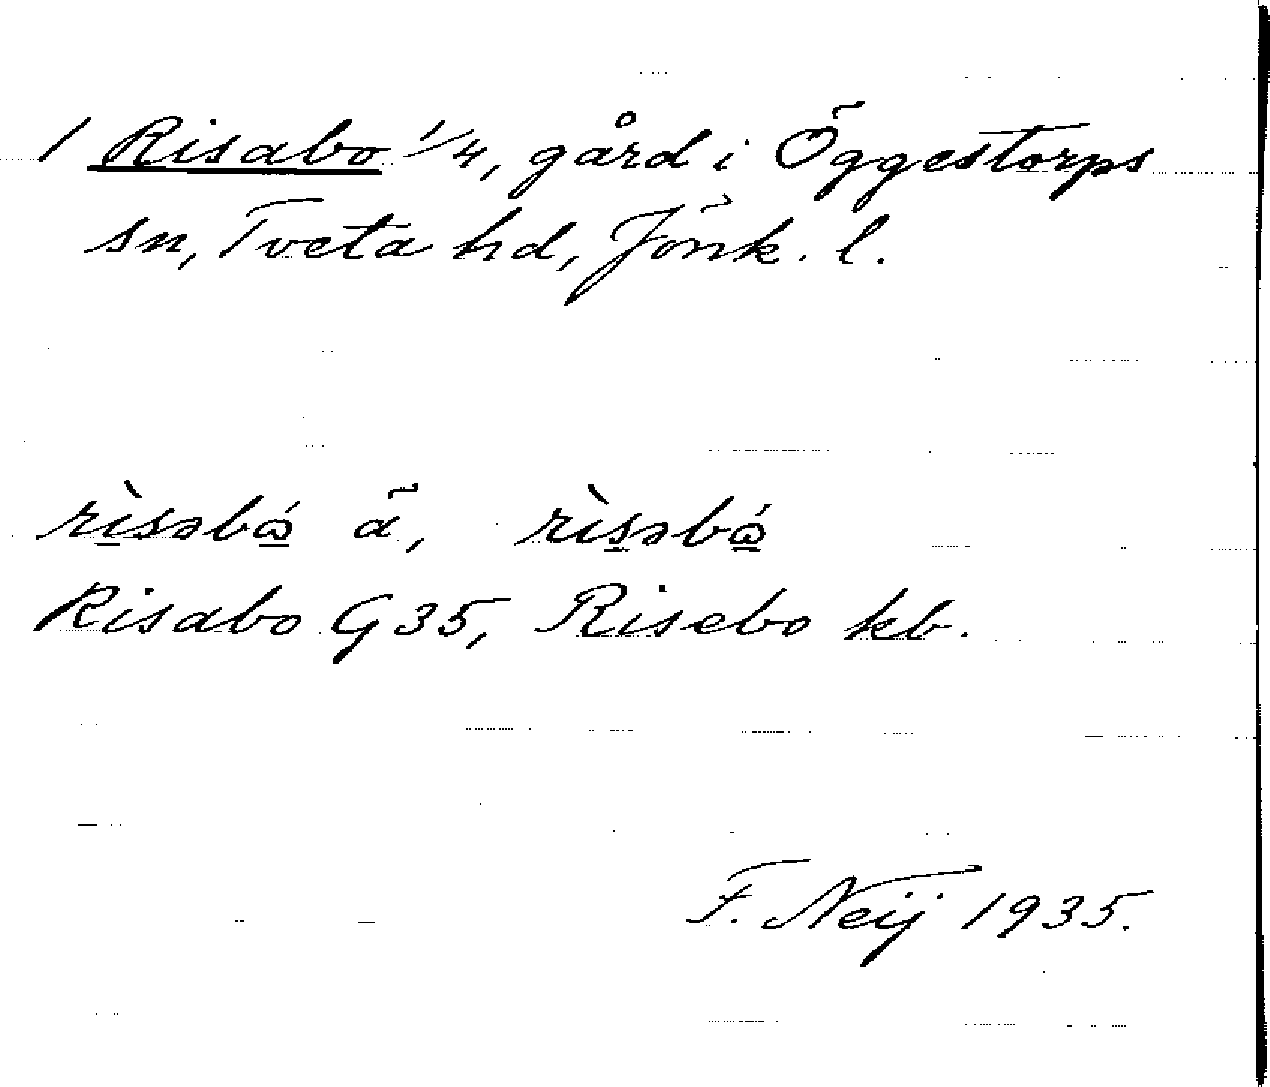 1 Risabo 1/4, gård i Öggestorps
sn, Tveta hd, Jönk. l.
rìsəbó̱ ä, rìsəbó̱
Risabo G35, Risebo kb.
F. Neij 1935.